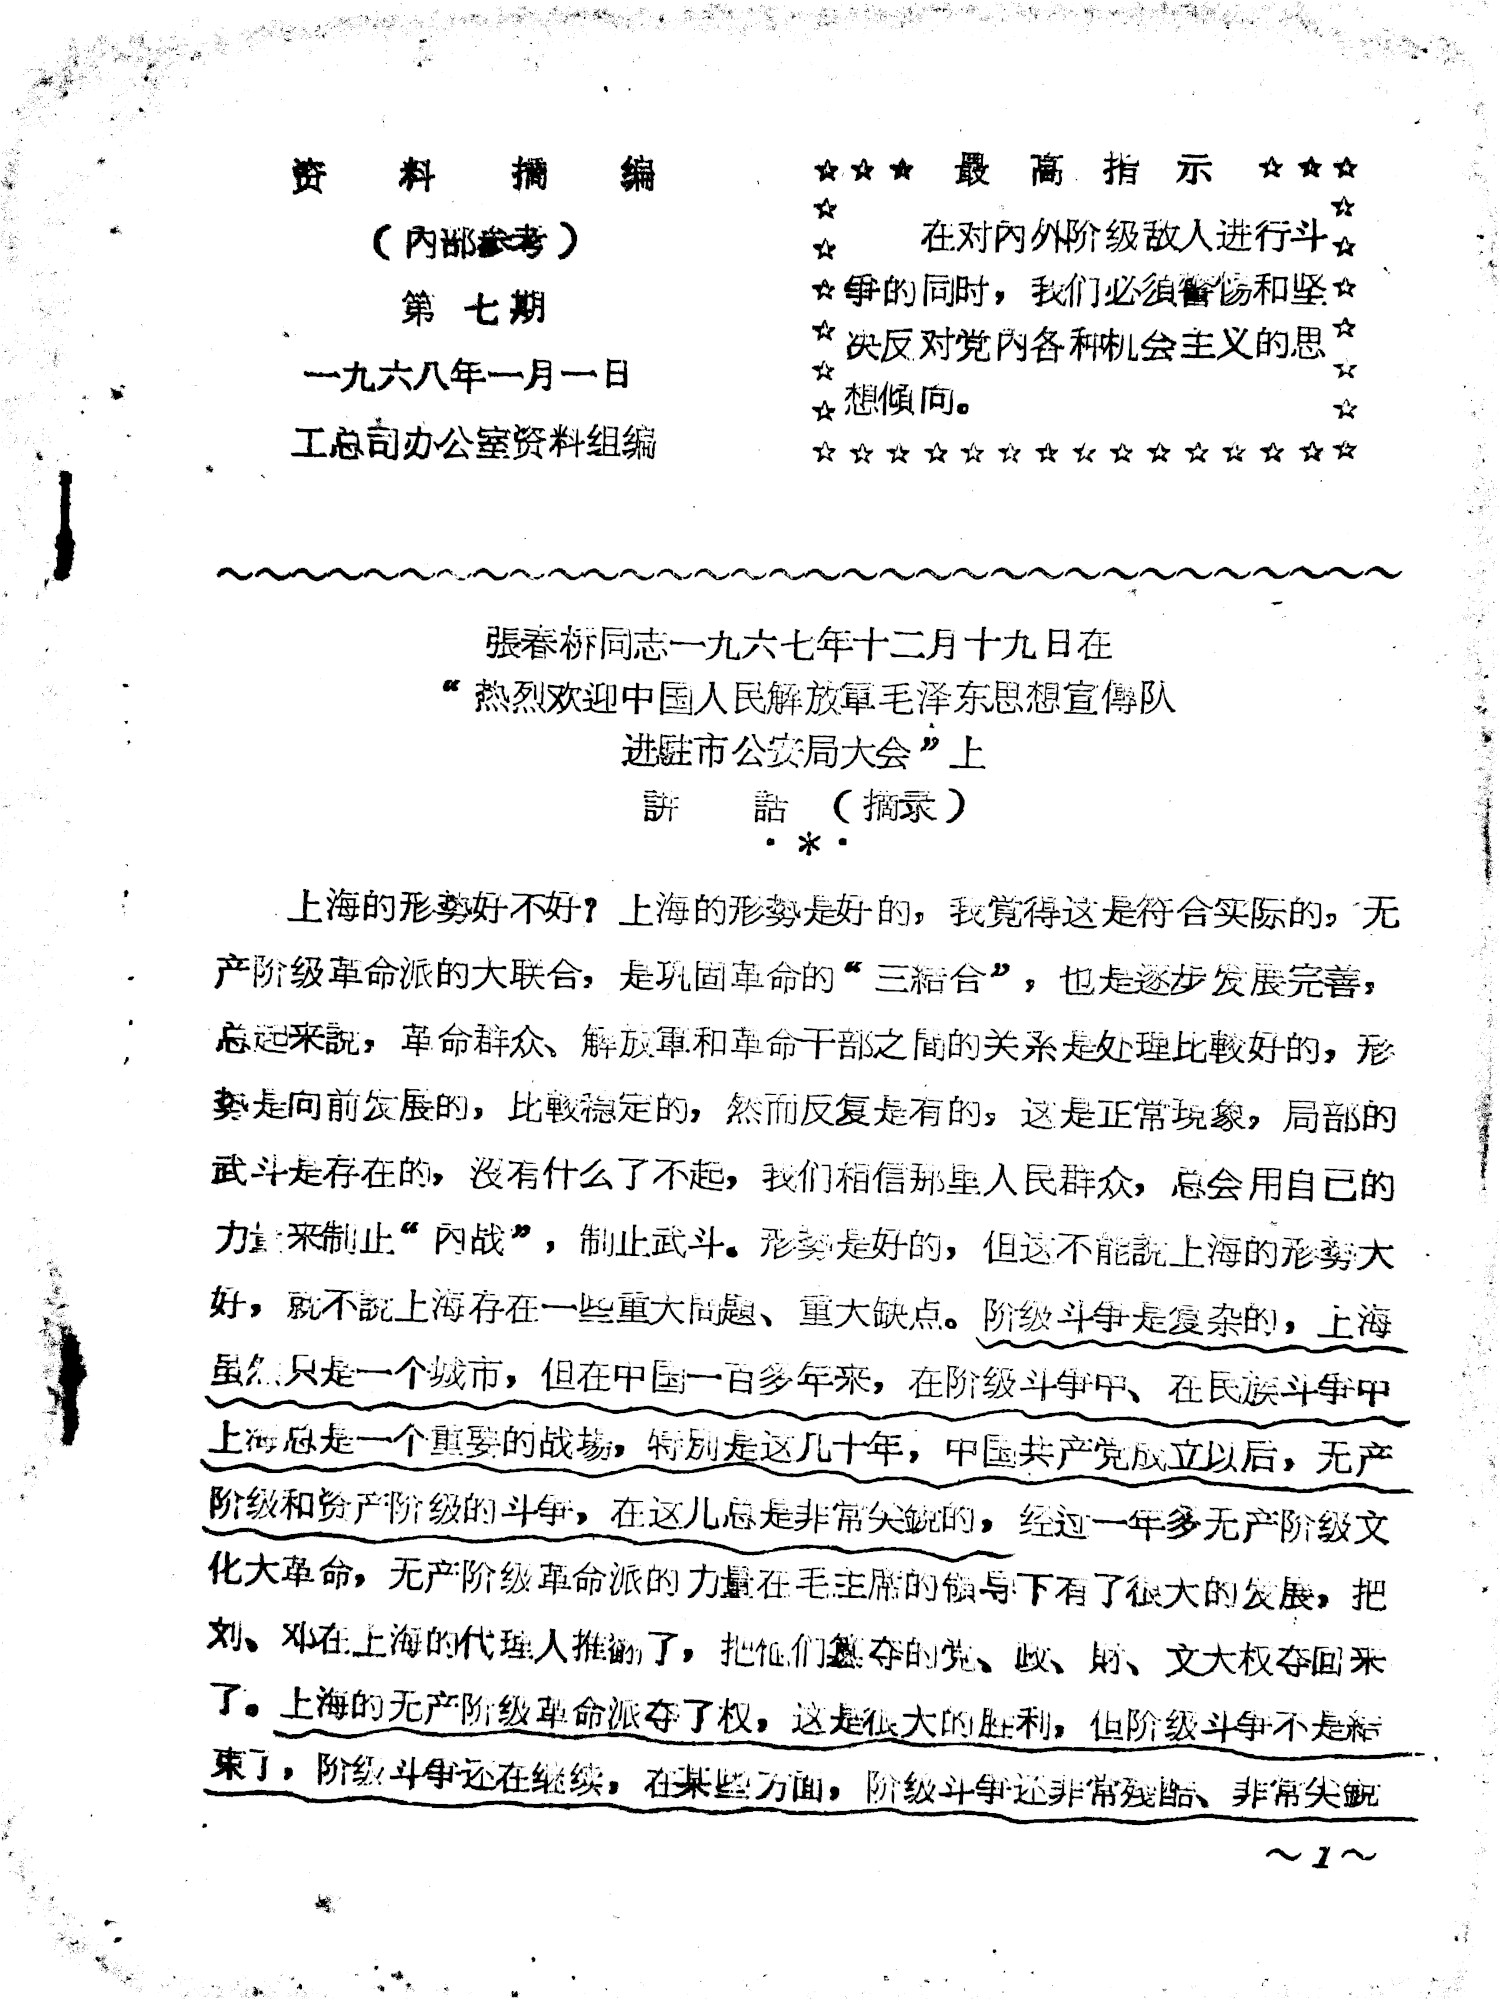 资料摘编
（内部参考）
第七期
一九六八年一月一日
工总司办公室资料组编
☆☆★最高指示☆☆☆
在对内外阶级敌人进行斗
争的同时，我们必须警惕和坚
决反对党内各种机会主义的思
想倾向。
張春桥同志一九六七年十二月十九日在
“热烈欢迎中国人民解放軍毛泽东思想宣傳队
进駐市公安局大会”上
講話（摘录）
·＊·
上海的形势好不好？上海的形势是好的，我覚得这是符合实际的，无
产阶级革命派的大联合，是巩固革命的“三結合”，也是逐步发展完善，
总起来說，革命群众、解放軍和革命干部之間的关系是处理比較好的，形
势是向前发展的，比較稳定的，然而反复是有的，这是正常現象，局部的
武斗是存在的，沒有什么了不起，我们相信那里人民群众，总会用自己的
力量来制止“内战”，制止武斗。形势是好的，但这不能說上海的形势大
好，就不說上海存在一些重大問題、重大缺点。阶级斗争是复杂的，上海
虽然只是一个城市，但在中国一百多年来，在阶级斗争中、在民族斗争中
上海总是一个重要的战場，特別是这几十年，中国共产党成立以后，无产
阶级和资产阶级的斗争，在这儿总是非常尖銳的，经过一年多无产阶级文
化大革命，无产阶级革命派的力量在毛主席的領导下有了很大的发展，把
刘、邓在上海的代理人推翻了，把他们篡夺的党、政、財、文大权夺回来
了。上海的无产阶级革命派夺了权，这是很大的胜利，但阶级斗争不是結
束了，阶级斗争还在继续，在某些方面，阶级斗争还非常残酷、非常尖銳
～1～